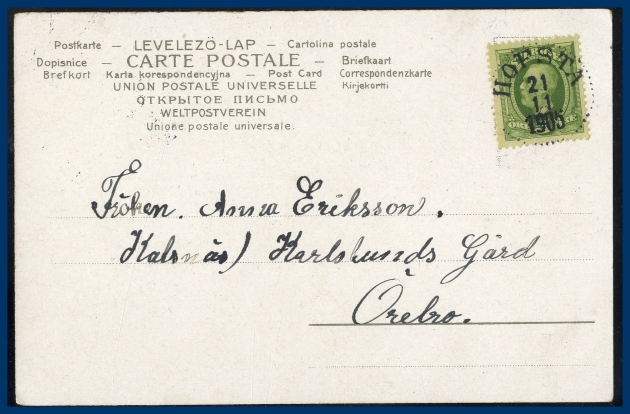 Postkarte – LEVELEZÖ-LAP – Cartolina postale
Dopisnice – CARTE POSTALE – Briefkaart
Brefkort Karta korespondencyjna – Post Card Correspondenzkarte
UNION POSTALE UNIVERSELLE Kirjekortti
ОТКРЫТОЕ ПИСЬМО
WELTPOSTVEREIN
Unione postale universale.
HOFSTA
21
11
1905
Fröken. Anna Eriksson.
Kalsnäs) Karlslunds Gård
Örebro.